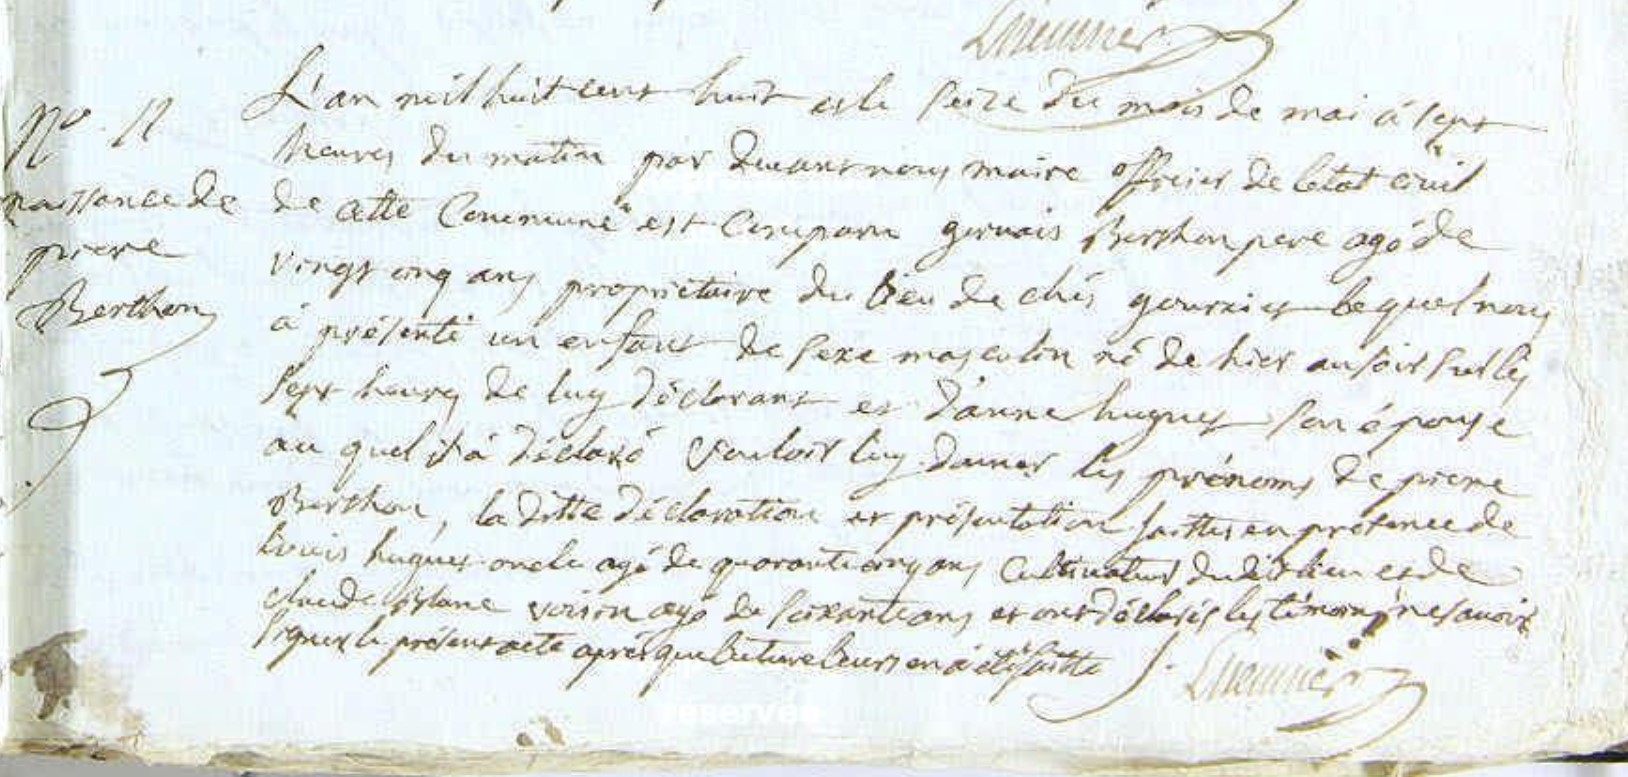 Lmeunier
N° 11
naissance de
pierre
Berthon
L'an mil huit cent huit et le seize du mois de mai à sept
heures du matin par devant nous maire officier de letat civil
de cette Commune est Comparu gervais Berthon pere agé de
vingt cinq ans propriétaire du lieu de chés lequel nous
à présenté un enfant de sexe masculin né de hier au soir sur les
sept heures de luy déclarant et d'anne hugues son épouse
au quel il à déclaré vouloir luy donner les prénoms de pierre
Berthon, la ditte déclaration et présentation faittes en présence de
Louis hugues oncle agé de quarante cinq ans Cultivateur dudit lieu et de
claude voisin agé de soixante ans et ont déclarés les témoins ne savoir
signer le présent acte après que lecture leurs en à été faitte
Lmeunier
reserves